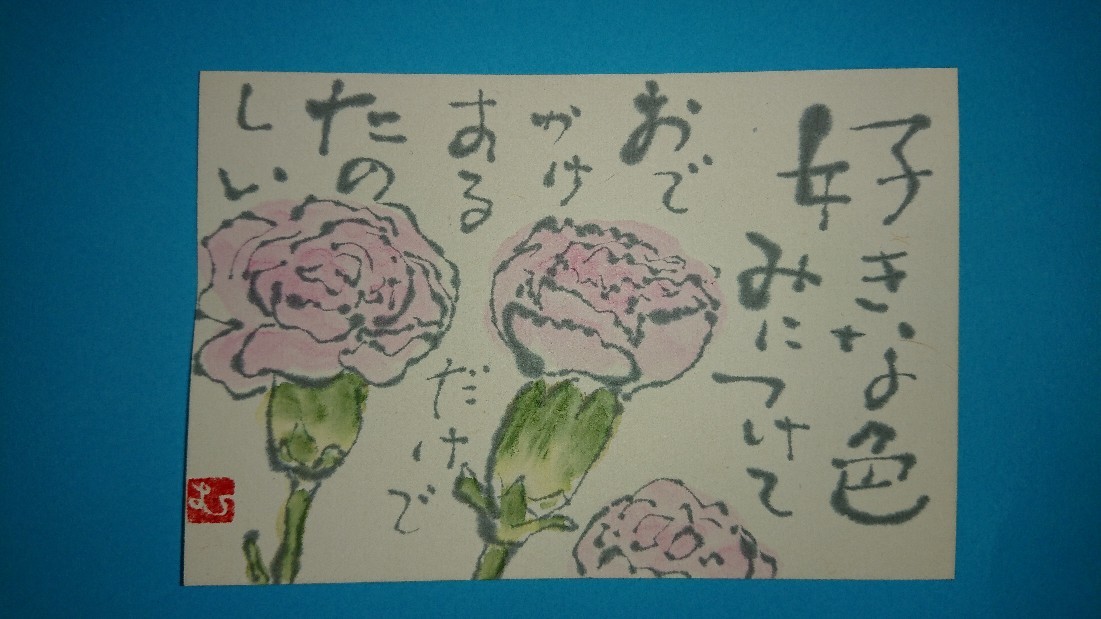 好きな色
みにつけて
おで
かけ
する
だけで
たの
しい
む